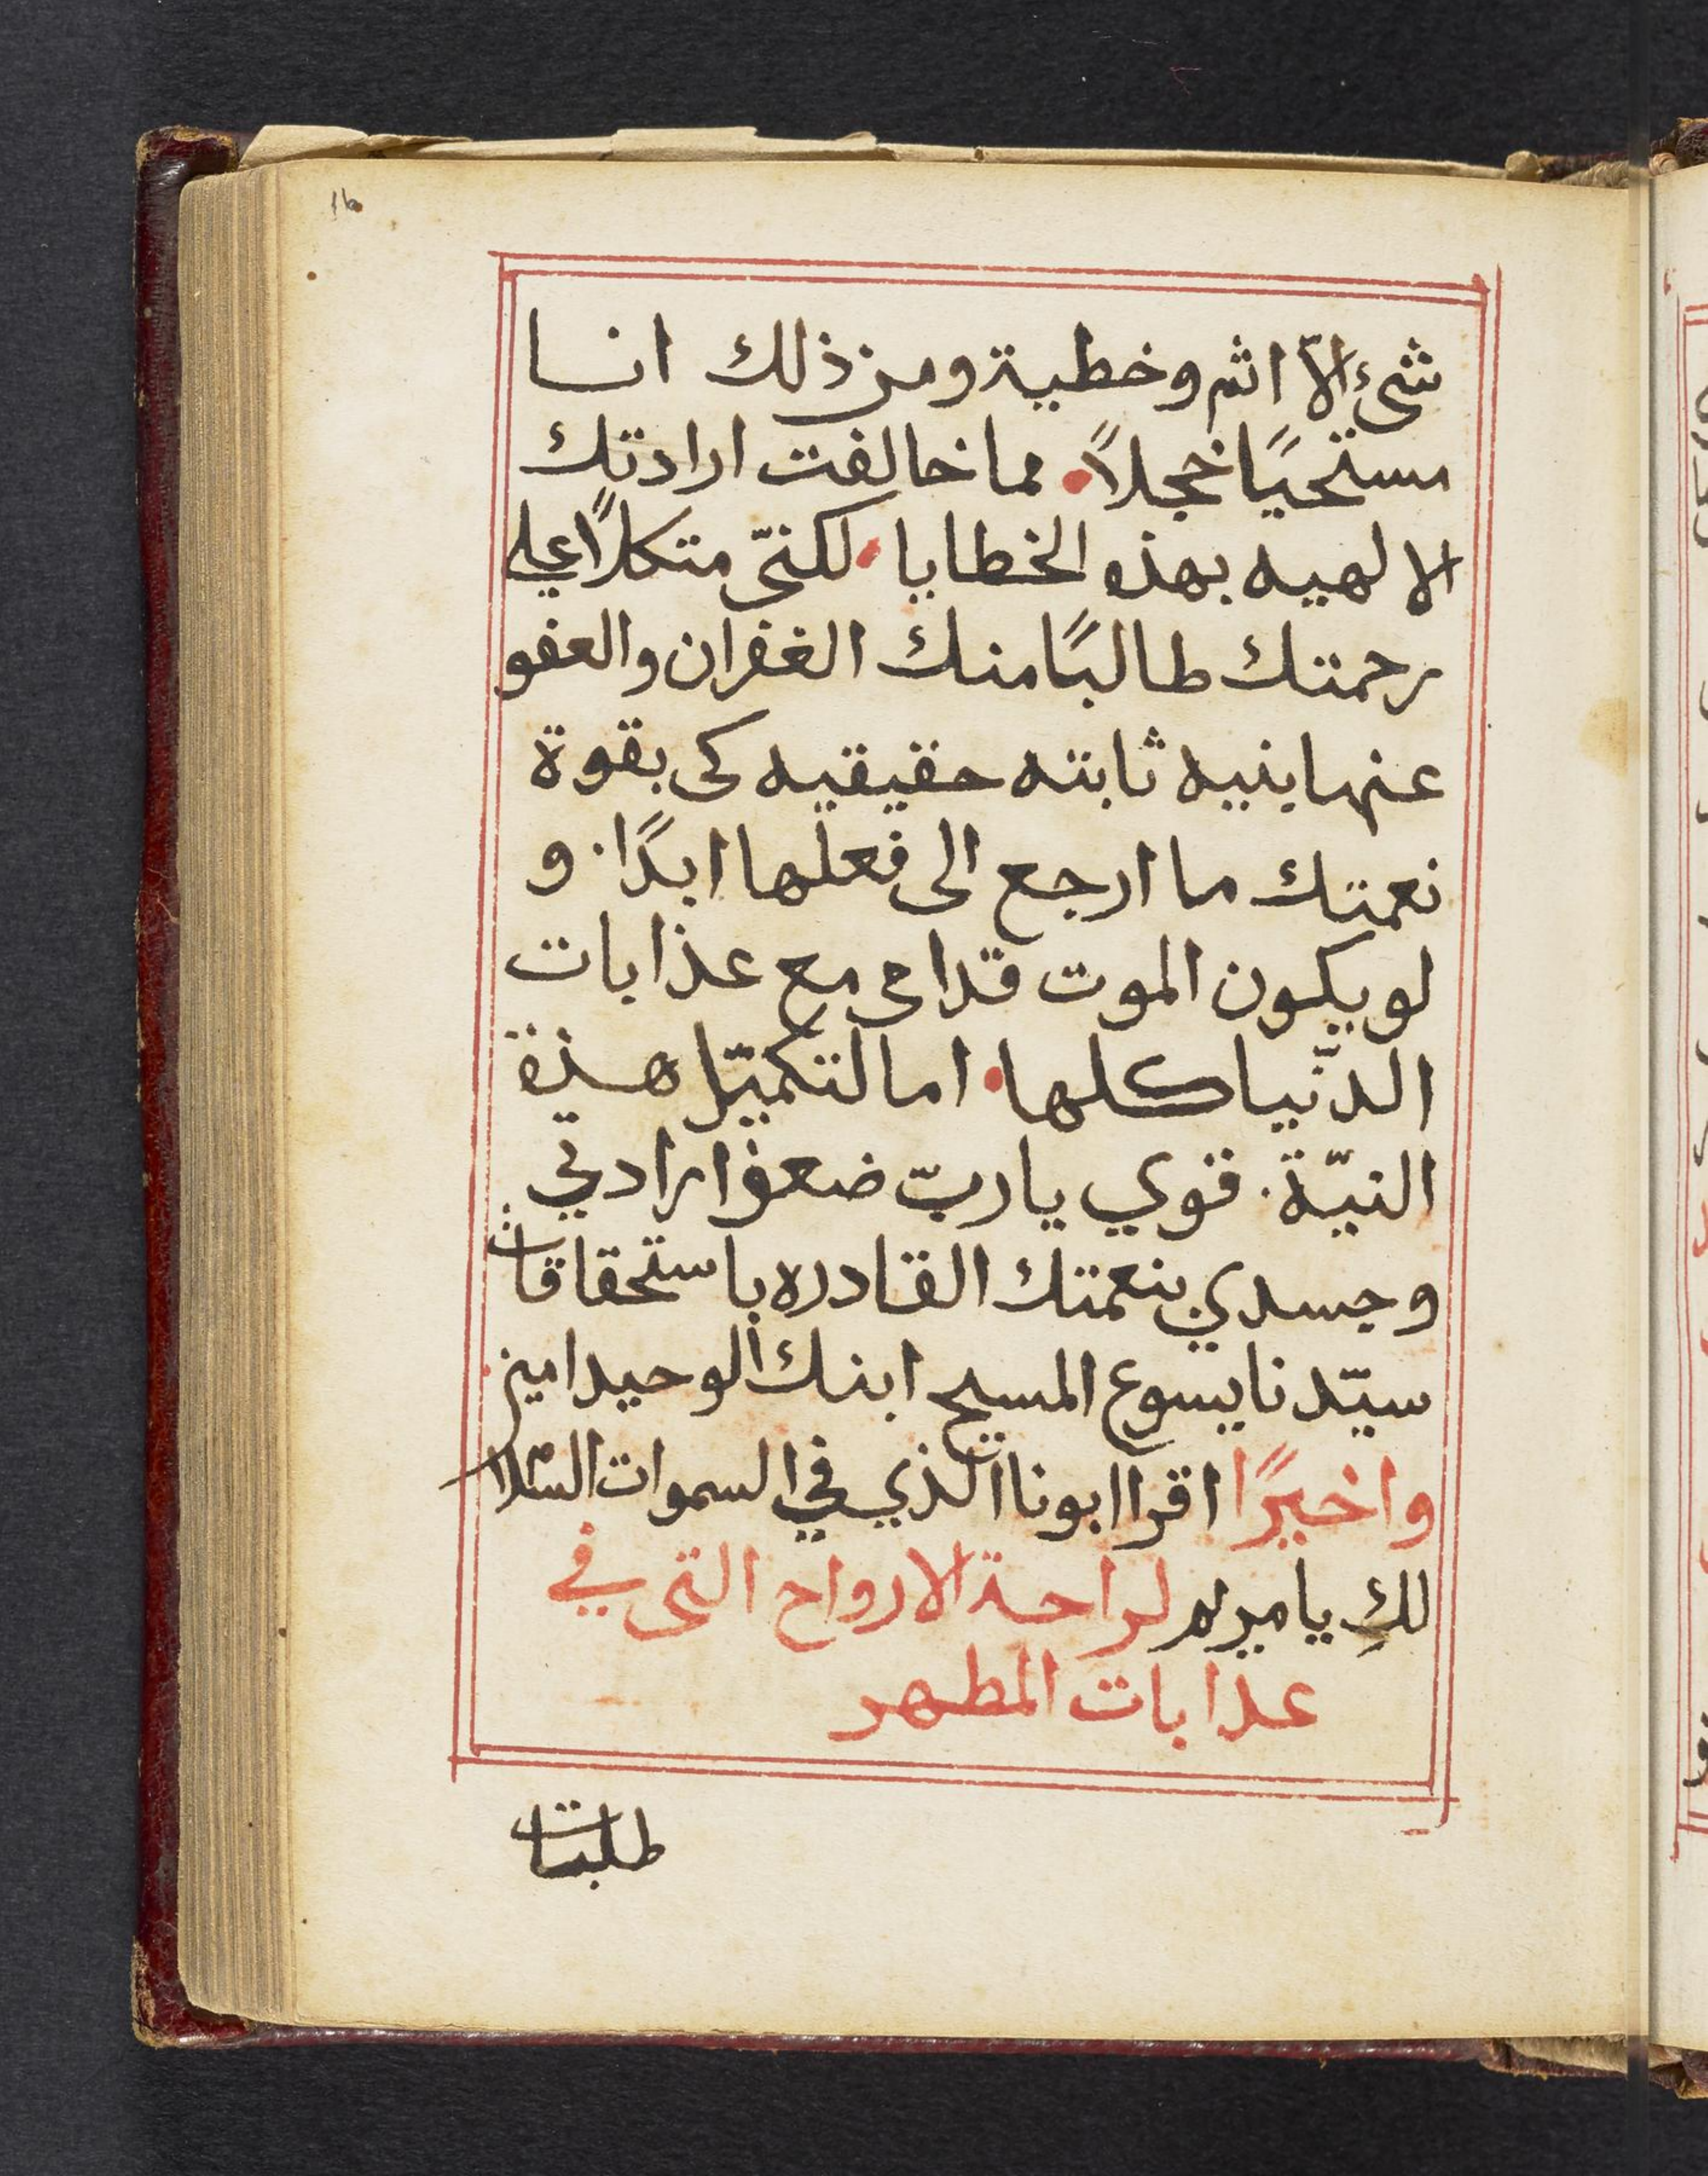 16
شيء الاّ اثم وخطية ومن ذلك انا
مستحيًا خجلاً. مما خالفت ارادتك
الالهيه بهذه الخطايا. لكنّي متكلاً علي
رحمتك طالبًا منك الغفران والعفو
عنها بنيه ثابته حقيقيه كي بقوة
نعمتك ما ارجع الى فعلها ابدًا. و
لو يكون الموت قدامي مع عذابات
الدنّيا كلها. اما لتكميّل هذة
النيّة. قوي يا ربّ ضعف ارادتي
وجسدي بنعمتك القادره باستحقاقات
سيّدنا يسوع المسيح ابنك الوحيد امين.
واخيرًا اقرا ابونا الذي في السموات السّلام
لكِ يا مريم لراحة الارواح التي في
عذابات المطهر
طلبات